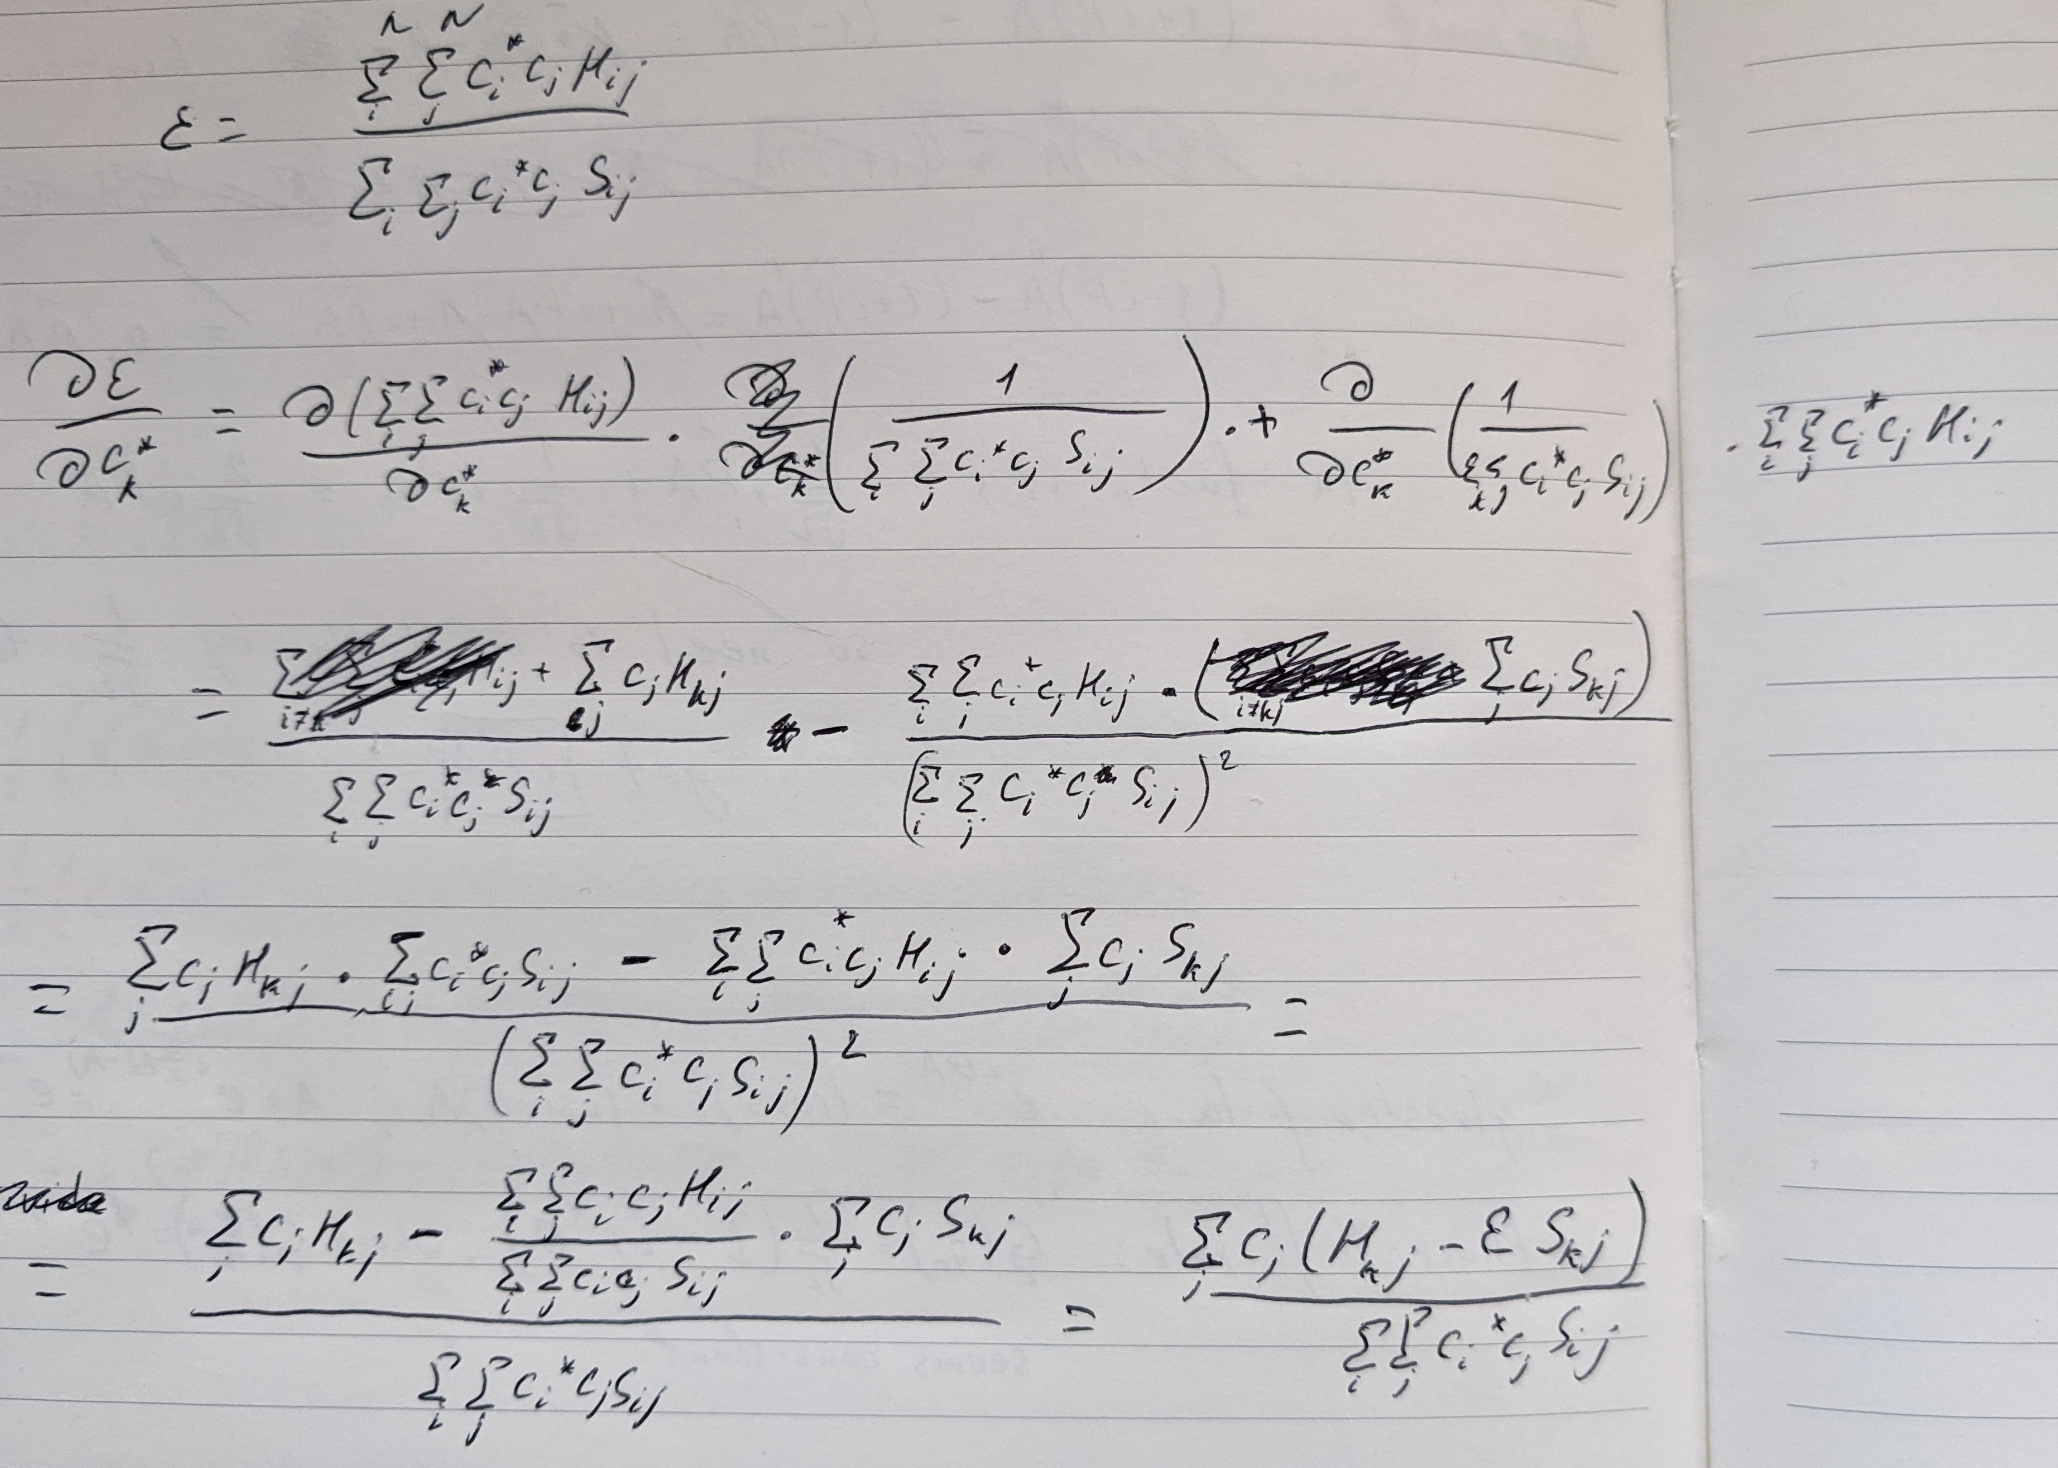 N N
ε = Σ_i Σ_j c_i^* c_j H_ij / Σ_i Σ_j c_i^* c_j S_ij
∂ε/∂c_k^* = ∂(Σ_i Σ_j c_i^* c_j H_ij)/∂c_k^* · (1 / Σ_i Σ_j c_i^* c_j S_ij) · + ∂/∂c_k^* (1 / Σ Σ_j c_i^* c_j S_ij) · Σ_i Σ_j c_i^* c_j H_ij
= Σ_{i≠k} H_ij + Σ_j c_j H_kj / Σ_i Σ_j c_i^* c_j^* S_ij - Σ_i Σ_j c_i^* c_j H_ij · (Σ_j c_j S_kj) / (Σ_i Σ_j c_i^* c_j S_ij)^2
= Σ_j c_j H_kj · Σ_ij c_i^* c_j S_ij - Σ_i Σ_j c_i^* c_j H_ij · Σ_j c_j S_kj / (Σ_i Σ_j c_i^* c_j S_ij)^2 =
= (Σ_j c_j H_kj - (Σ_i Σ_j c_i c_j H_ij / Σ_i Σ_j c_i c_j S_ij) · Σ_j c_j S_kj) / Σ_i Σ_j c_i^* c_j S_ij = Σ_j c_j (H_kj - ε S_kj) / Σ_i Σ_j c_i^* c_j S_ij